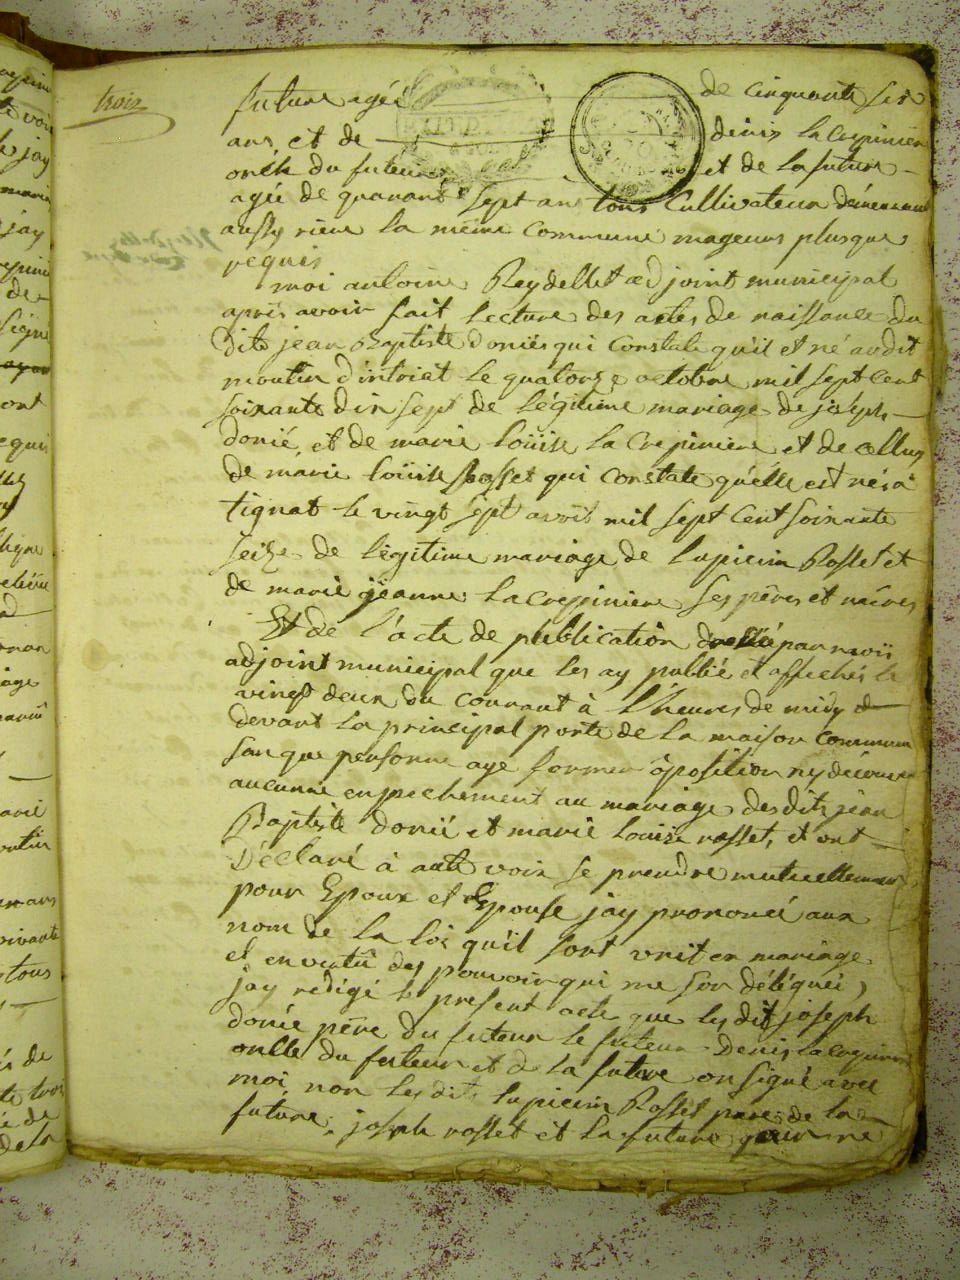 trois
future agé de cinquante six
ans et de denis lacrepinière
oncle du futeur et de la future
agée de quarant sept ans tous Cultivateur demeurant
aussy riere la même Commune mageurs plusque
requis
moi antoine Reydellet adjoint municipal
après avoir fait lecture des actes de naissance du
dits jean Baptiste donies qui Constate qu'il et né audit
moulin d'intriat le quatorze octobre mil sept Cent
soixante dix sept de légitime mariage de joseph
donié et de marie loüise la Crepiniere et de celluy
de marie loüise Rosset qui constate quélle est née à
tignat le vingt sépt avöit mil sept Cent soixante
seize de légitime mariage de lupicin Rosset et
de marie jeanne lacrepiniere ses péres et méres
Et de l'acte de publication dressé par moü
adjoint municipal que les ay publié et affichés le
vingt deux du courant à l'heures de midy
devant la principal porte de la maison commune
san que personne aye former oposition ny décourir
aucune enpechement au mariage desdits jean
Baptiste donié et marie louise rosset, et ont
Déclaré à aute voix se prendre mutuellement
pour Epoux et Epouse jay prononcé aux
nom de la loi quil sont unit en mariage
et en vertû des pouvoir qui me son délégués,
jay redigé le present acte que les dit joseph
donie père du futeur le futeur Denis lacrepiniere
oncle du futeur et d la future on signé avec
moi non les dit lupicin Rosset père de la
future joseph rosset et la future pour ne